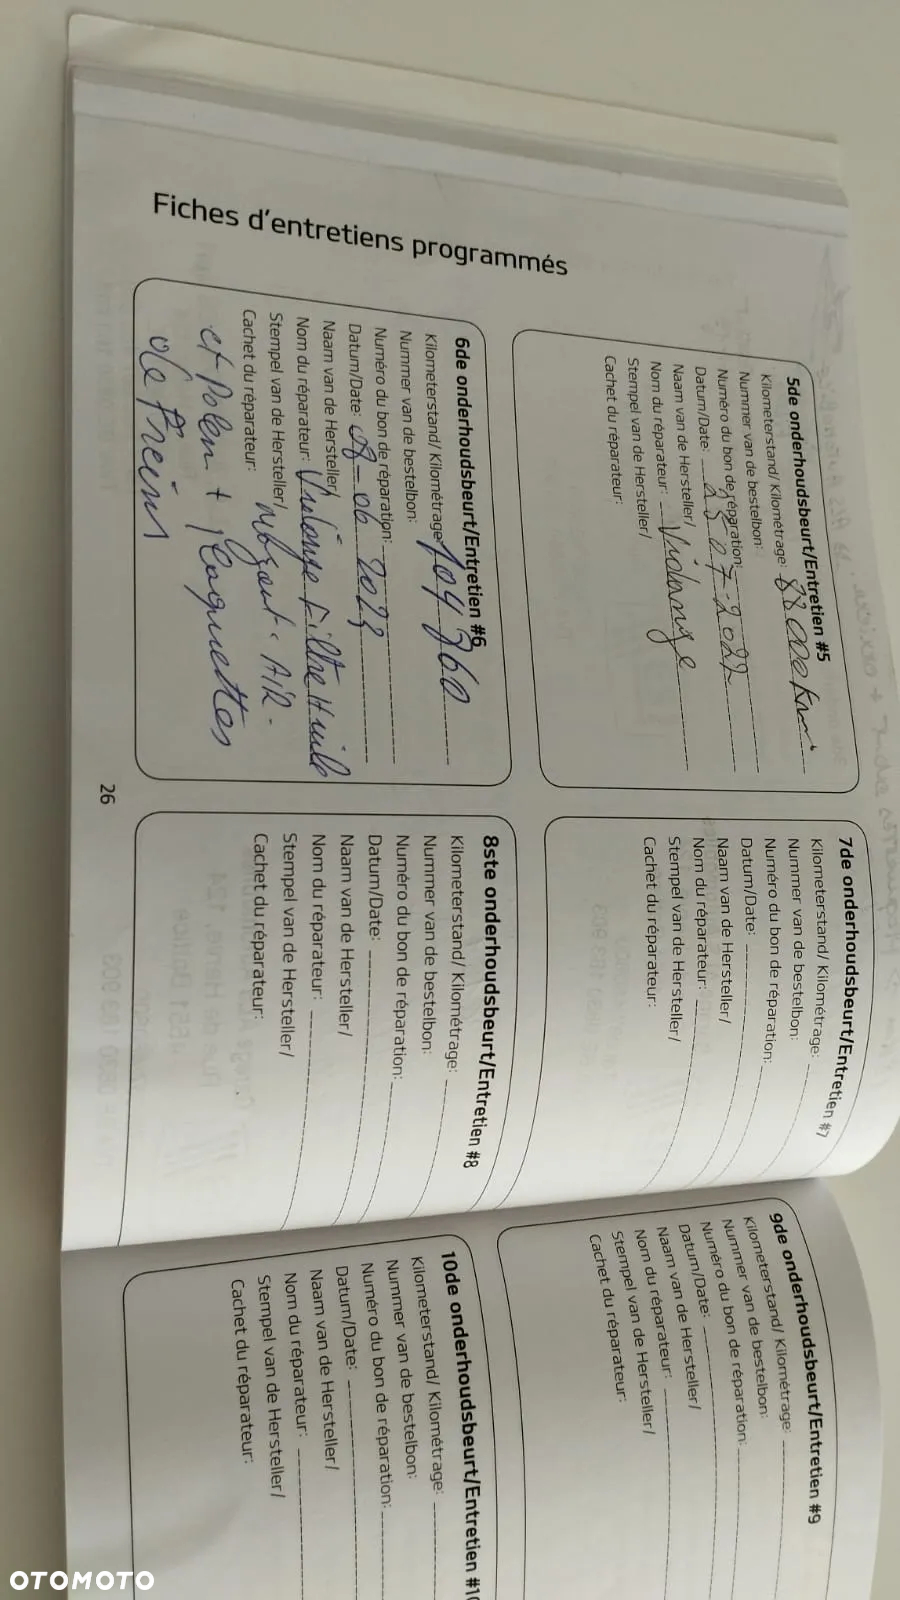 Fiches d'entretiens programmés
5de onderhoudsbeurt/Entretien #5
Kilometerstand/ Kilométrage: 88000 km
Nummer van de bestelbon:
Numéro du bon de réparation:
Datum/Date: 25-07-2022
Naam van de Hersteller/
Nom du réparateur: Vidange
Stempel van de Hersteller/
Cachet du réparateur:
6de onderhoudsbeurt/Entretien #6
Kilometerstand/ Kilométrage: 104 760
Nummer van de bestelbon:
Numéro du bon de réparation:
Datum/Date: 08-06 2023
Naam van de Hersteller/
Nom du réparateur: Filtre Huile
Stempel van de Hersteller/ AiR.
Cachet du réparateur:
et Polen + Plaquettes
de Freins
26
7de onderhoudsbeurt/Entretien #7
Kilometerstand/ Kilométrage:
Nummer van de bestelbon:
Numéro du bon de réparation:
Datum/Date:
Naam van de Hersteller/
Nom du réparateur:
Stempel van de Hersteller/
Cachet du réparateur:
8ste onderhoudsbeurt/Entretien #8
Kilometerstand/ Kilométrage:
Nummer van de bestelbon:
Numéro du bon de réparation:
Datum/Date:
Naam van de Hersteller/
Nom du réparateur:
Stempel van de Hersteller/
Cachet du réparateur:
9de onderhoudsbeurt/Entretien #9
Kilometerstand/ Kilométrage:
Nummer van de bestelbon:
Numéro du bon de réparation:
Datum/Date:
Naam van de Hersteller/
Nom du réparateur:
Stempel van de Hersteller/
Cachet du réparateur:
10de onderhoudsbeurt/Entretien #10
Kilometerstand/ Kilométrage:
Nummer van de bestelbon:
Numéro du bon de réparation:
Datum/Date:
Naam van de Hersteller/
Nom du réparateur:
Stempel van de Hersteller/
Cachet du réparateur:
OTOMOTO